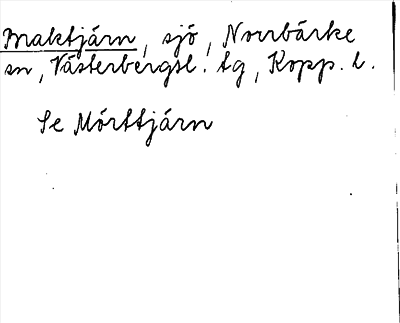 Maktjärn, sjö, Norrbärke
sn, Västerbergsl. tg, Kopp. l.
Se Mörttjärn